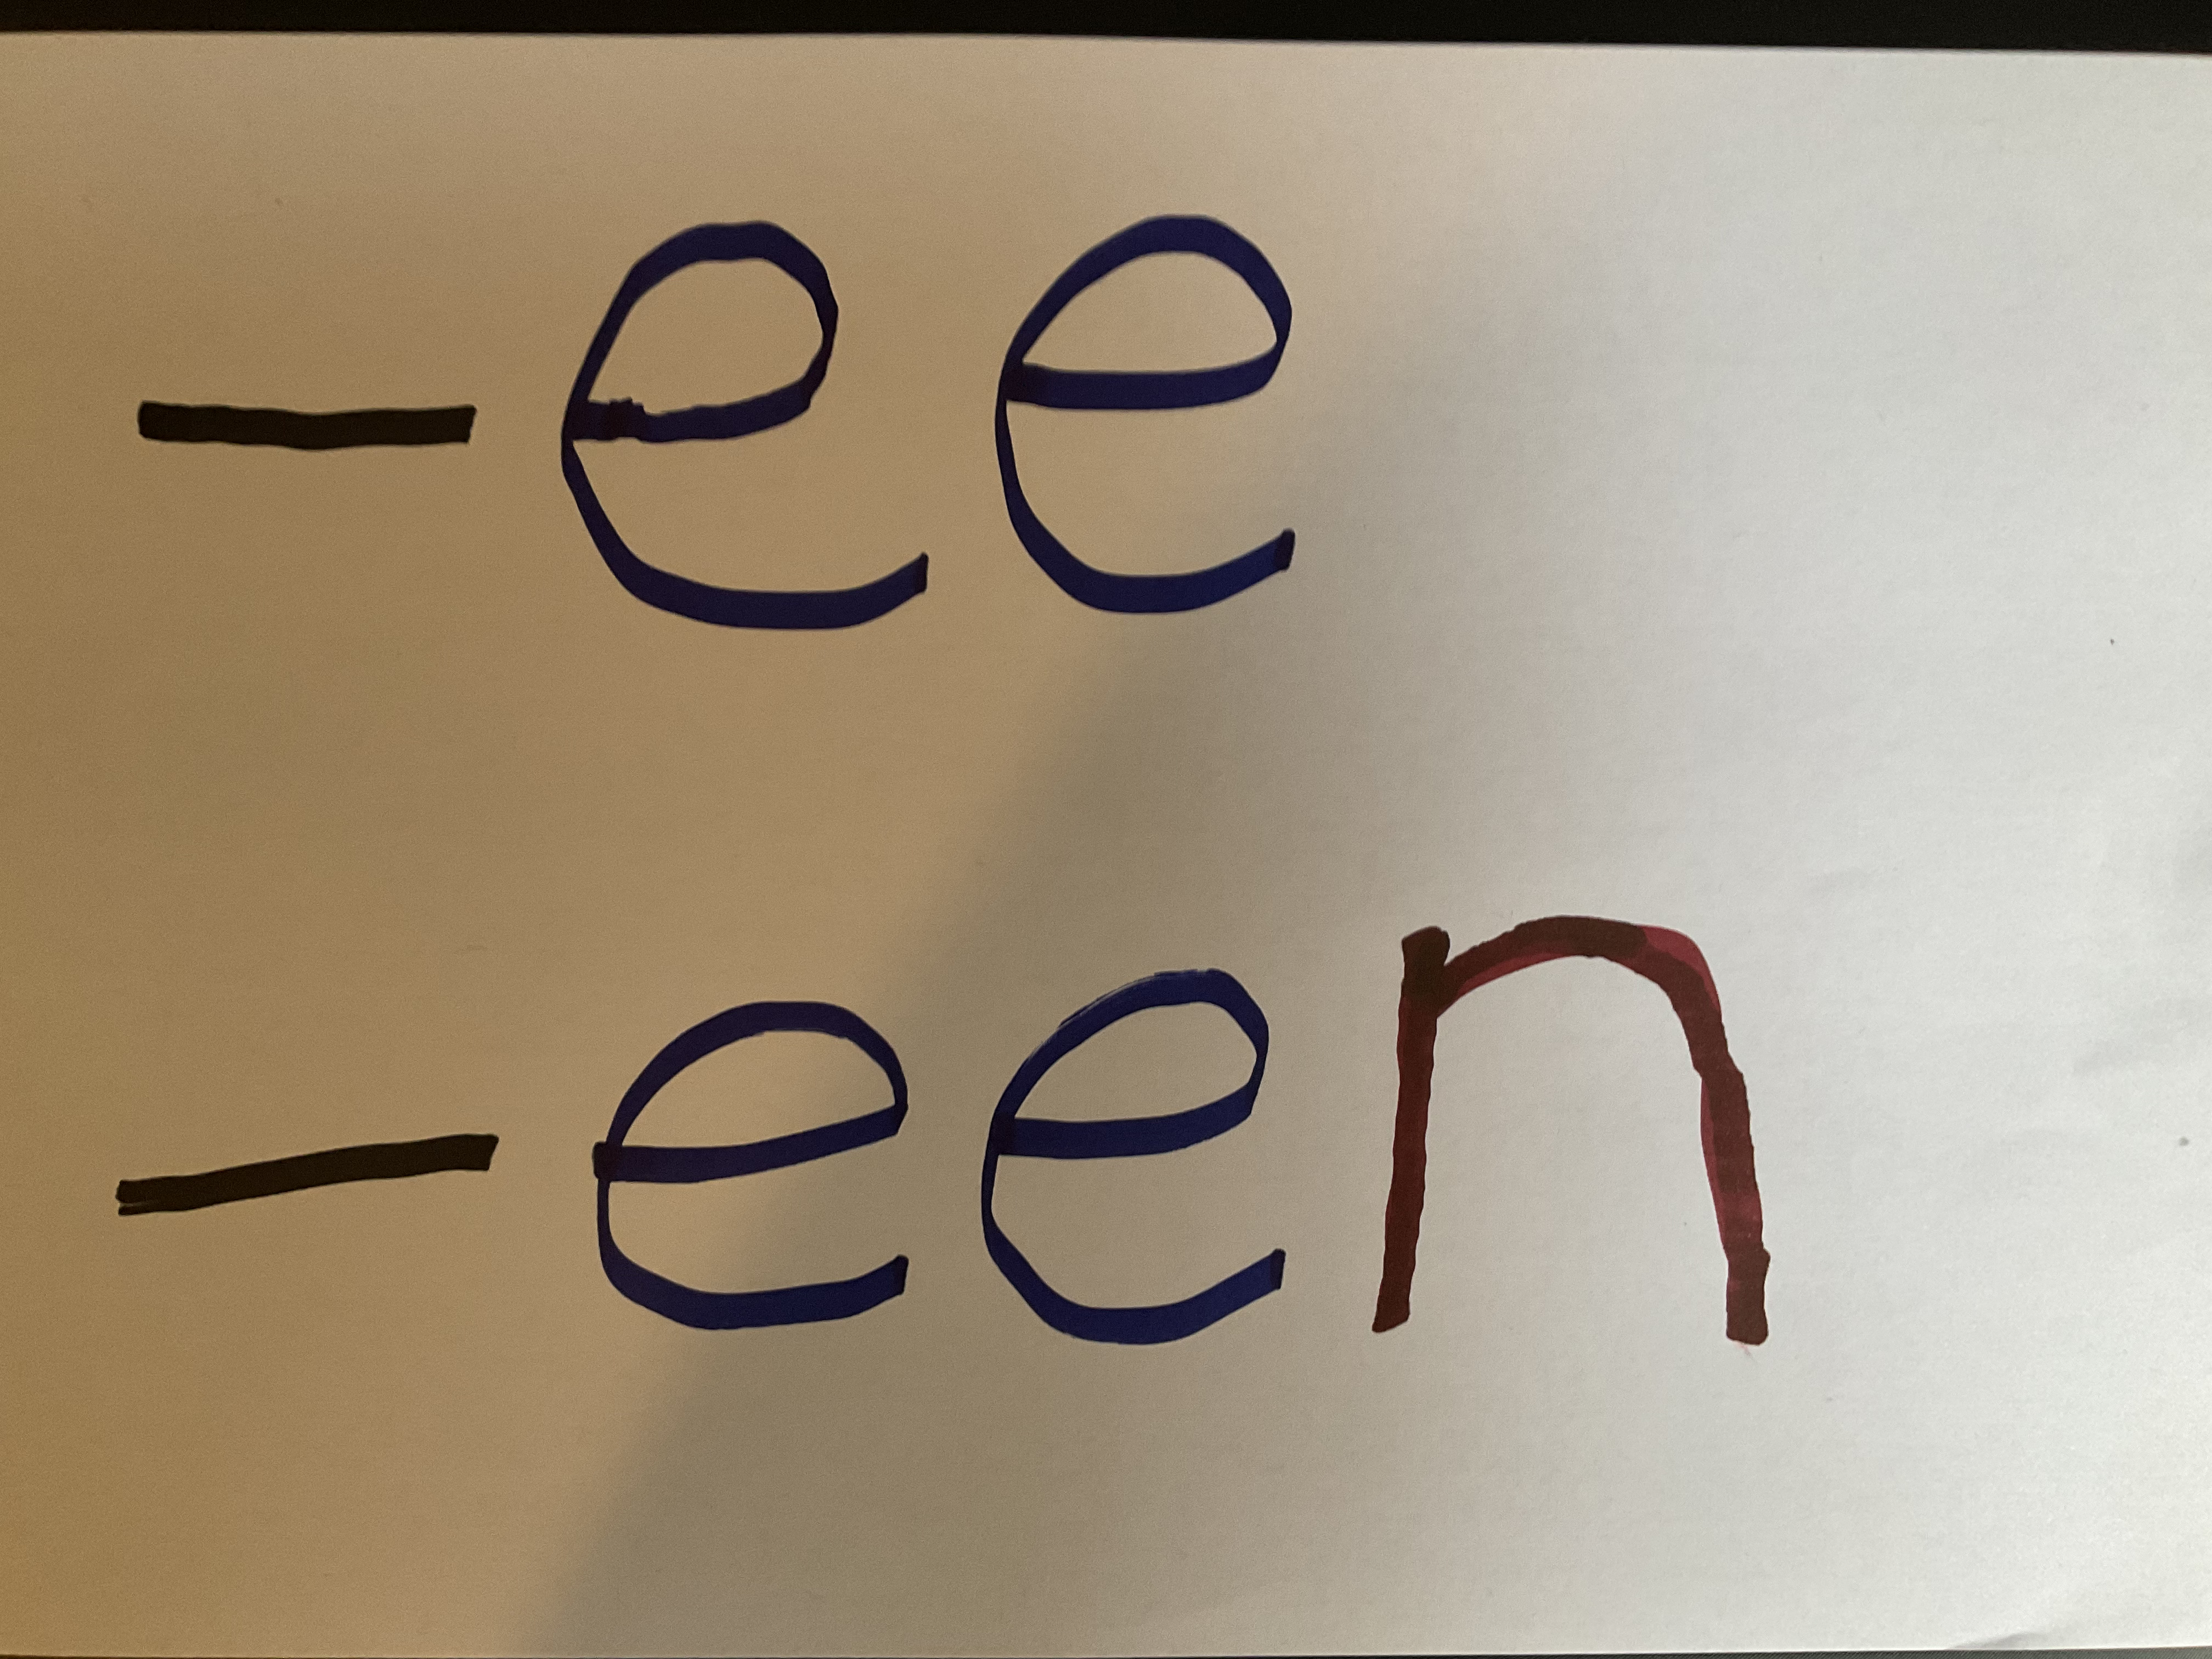 -ee
-een